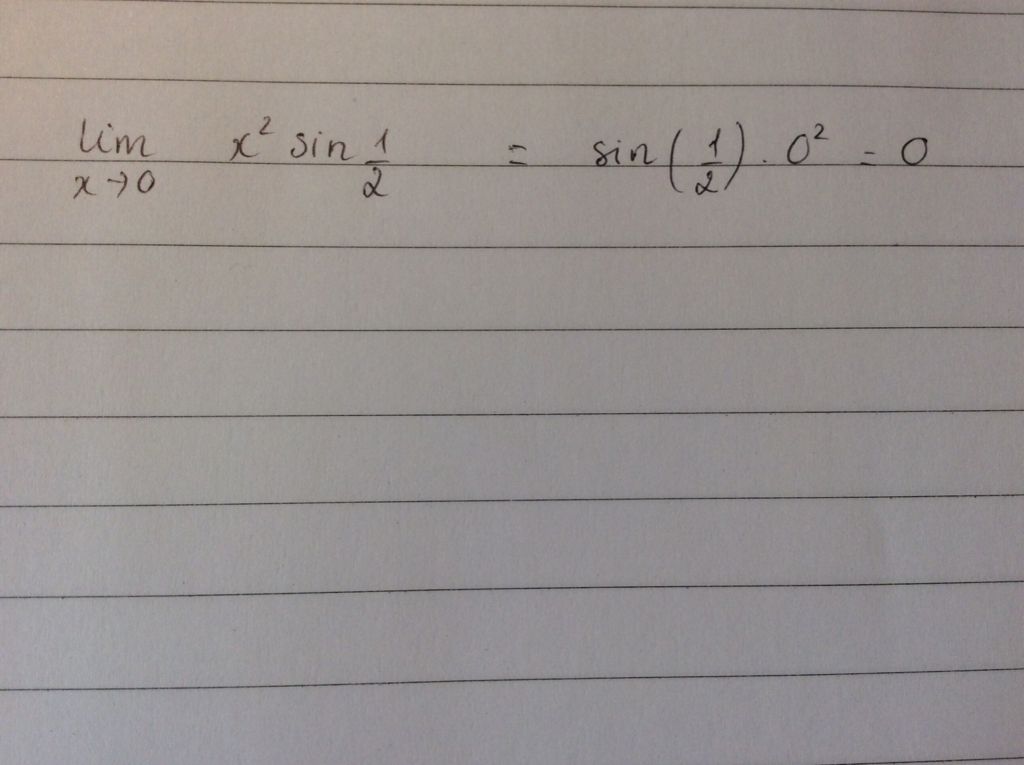 lim x→0 x² sin 1/2 = sin(1/2) · 0² = 0